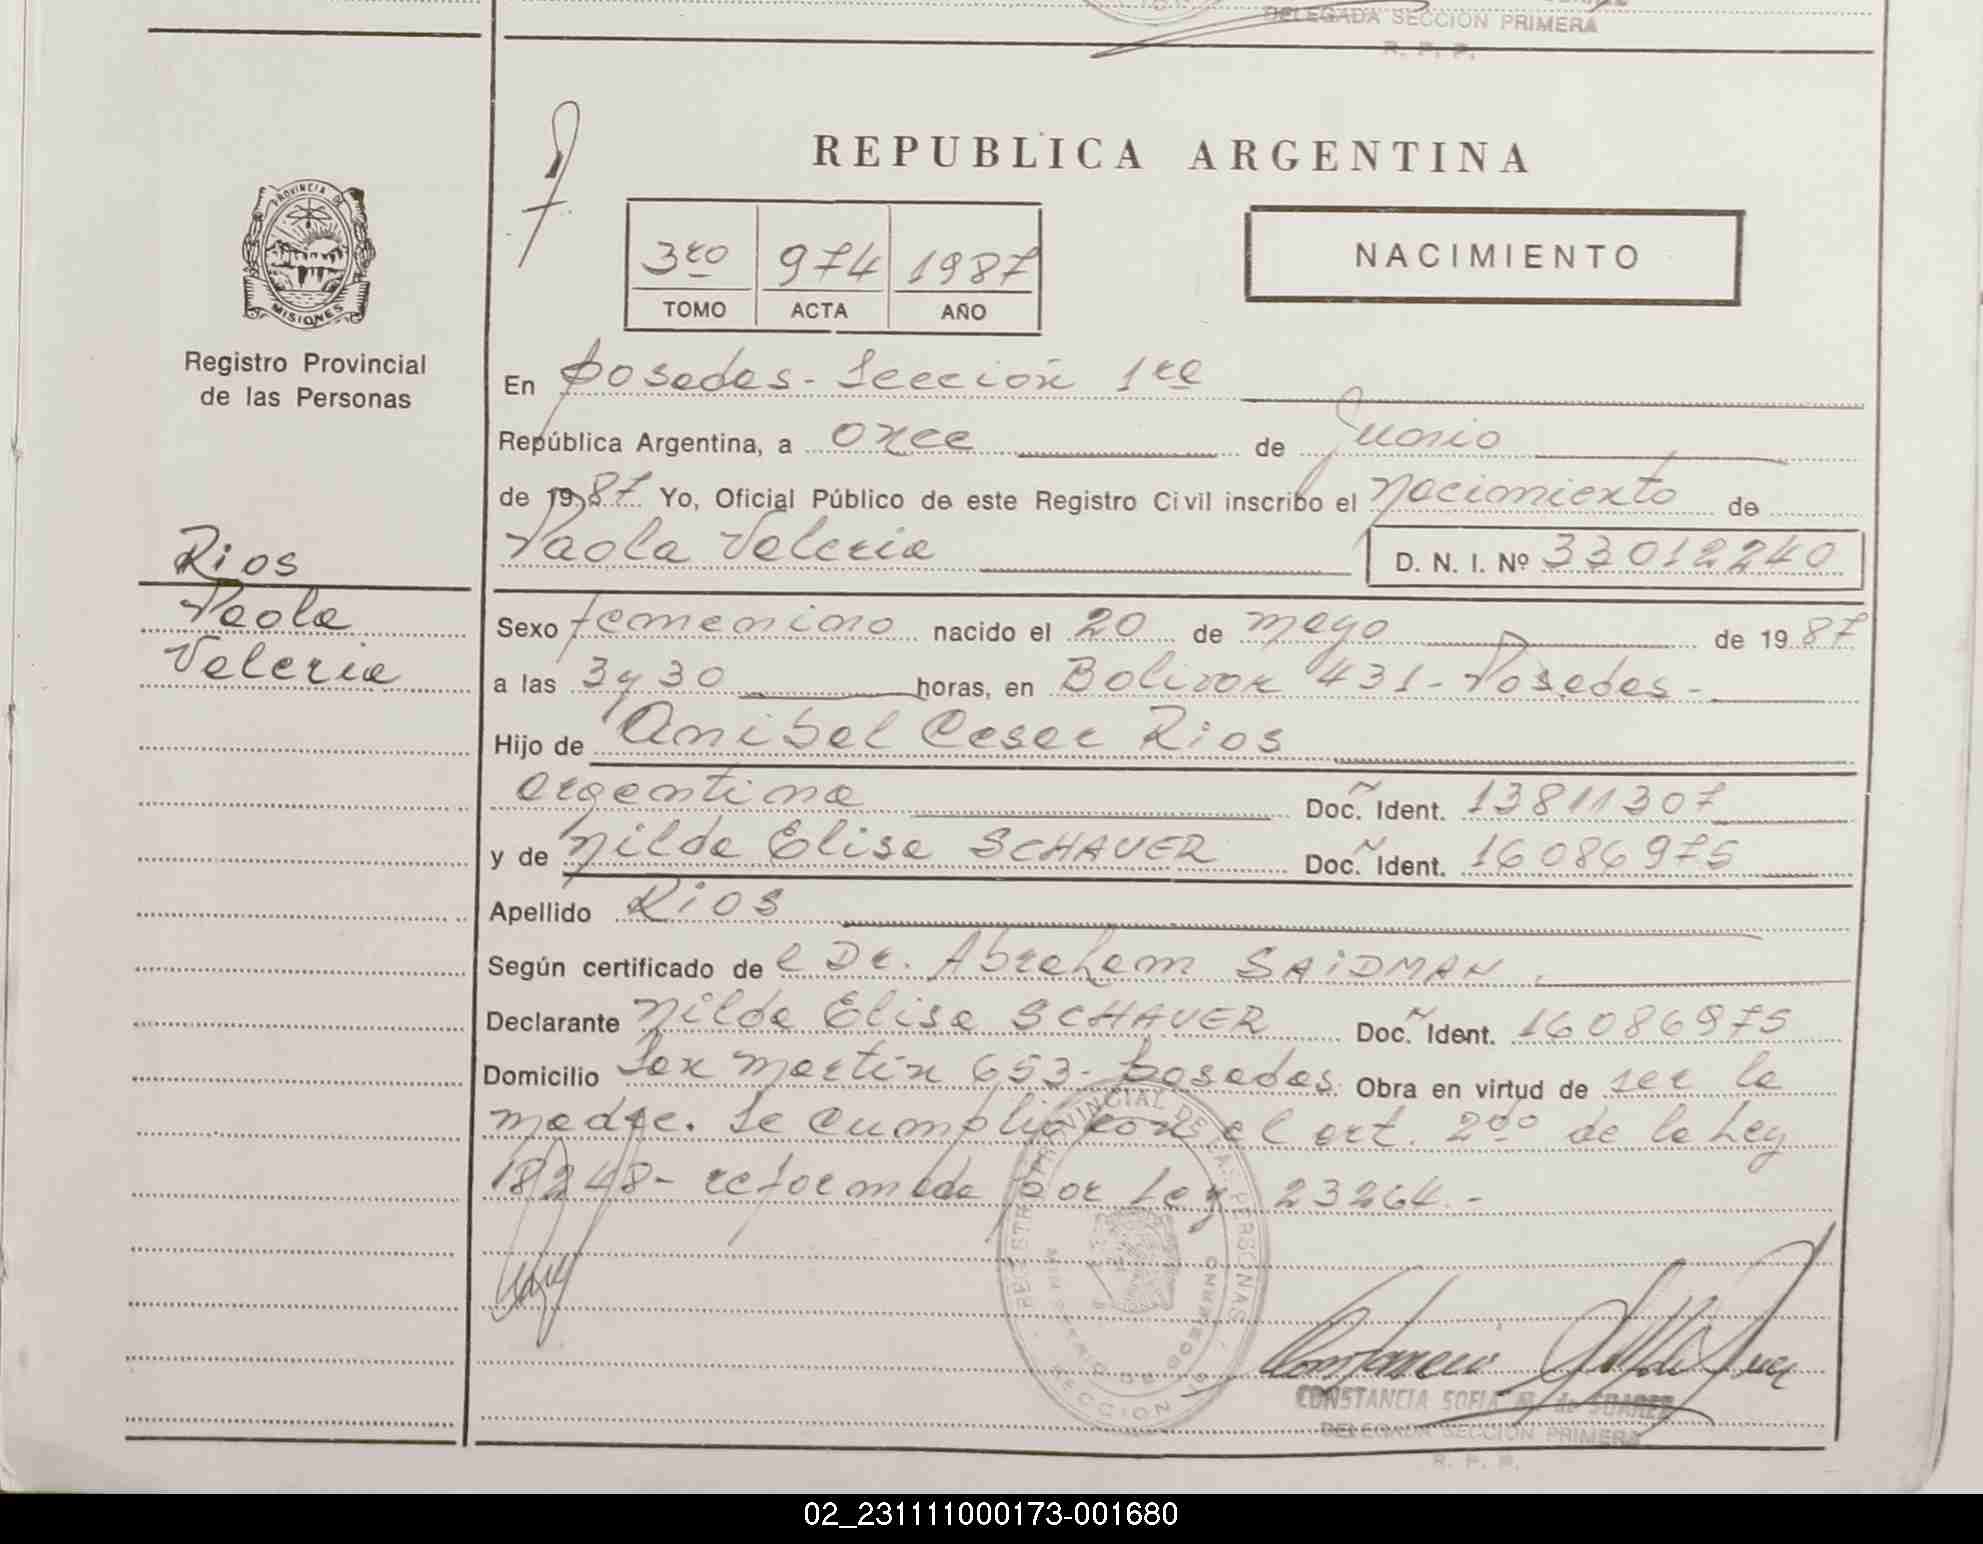 DELEGADA SECCION PRIMERA
R. P. P.
REPUBLICA ARGENTINA
PROVINCIA DE
MISIONES
3ro 974 1987
TOMO ACTA AÑO
NACIMIENTO
Registro Provincial
de las Personas
En Posadas - Sección 1ra
República Argentina, a once de Junio
de 1987 Yo, Oficial Público de este Registro Civil inscribo el nacimiento de
Paola Valeria D. N. I. Nº 33012240
Rios
Paola
Valeria
Sexo femenino nacido el 20 de mayo de 1987
a las 3 y 30 horas, en Bolivar 431 - Posadas -
Hijo de Anibal Cesar Rios
argentina Doc. Ident. 13811307
y de Nilda Elisa SCHAUER Doc. Ident. 16086975
Apellido Rios
Según certificado de el Dr. Abraham SAIDMAN.
Declarante Nilda Elisa SCHAUER Doc. Ident. 16086975
Domicilio San Martín 653 - Posadas Obra en virtud de ser la
madre. Se cumplió con el art. 2do de la Ley
18248 - reformada por Ley 23264.-
REGISTRO PROVINCIAL DE LAS PERSONAS
MINISTERIO DE GOBIERNO
SECCION
CONSTANCIA SOFIA M. de SUAREZ
DELEGADA SECCION PRIMERA
R. P. P.
02_231111000173-001680